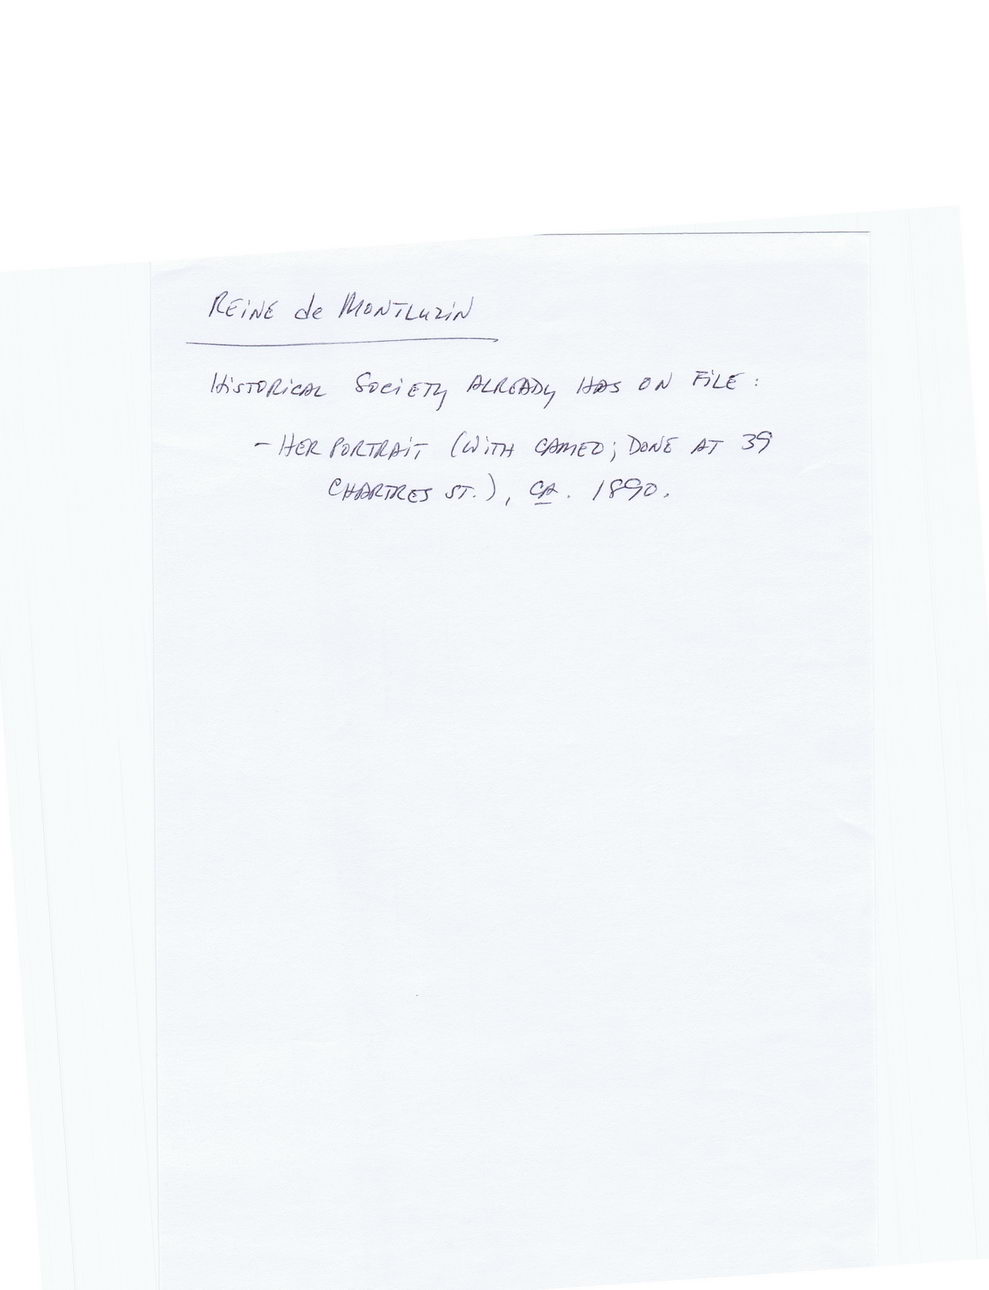 REINE de MONTLUZIN
HISTORICAL SOCIETY ALREADY HAS ON FILE:
- HER PORTRAIT (WITH CAMEO; DONE AT 39
CHARTRES ST.), CA. 1890.